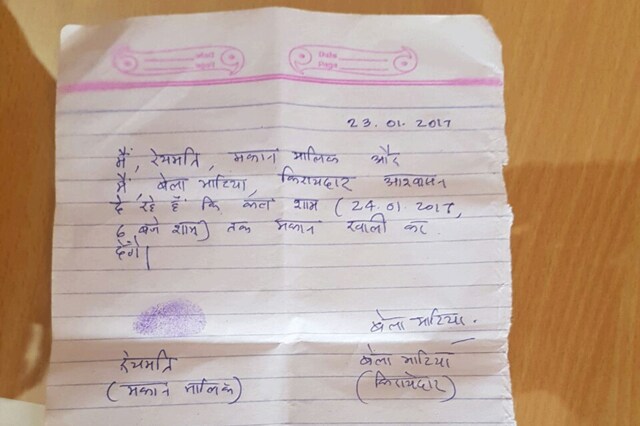 23.01.2017
मैं, रेयमति, मकान मालिक और
मैं, बेला भाटिया, किरायदार आश्वासन
दे रहे हैं कि कल शाम (24.01.2017,
6 बजे शाम) तक मकान खाली कर
देंगे।
बेला भाटिया.
रेयमति
बेला भाटिया
(मकान मालिक)
(किरायेदार)